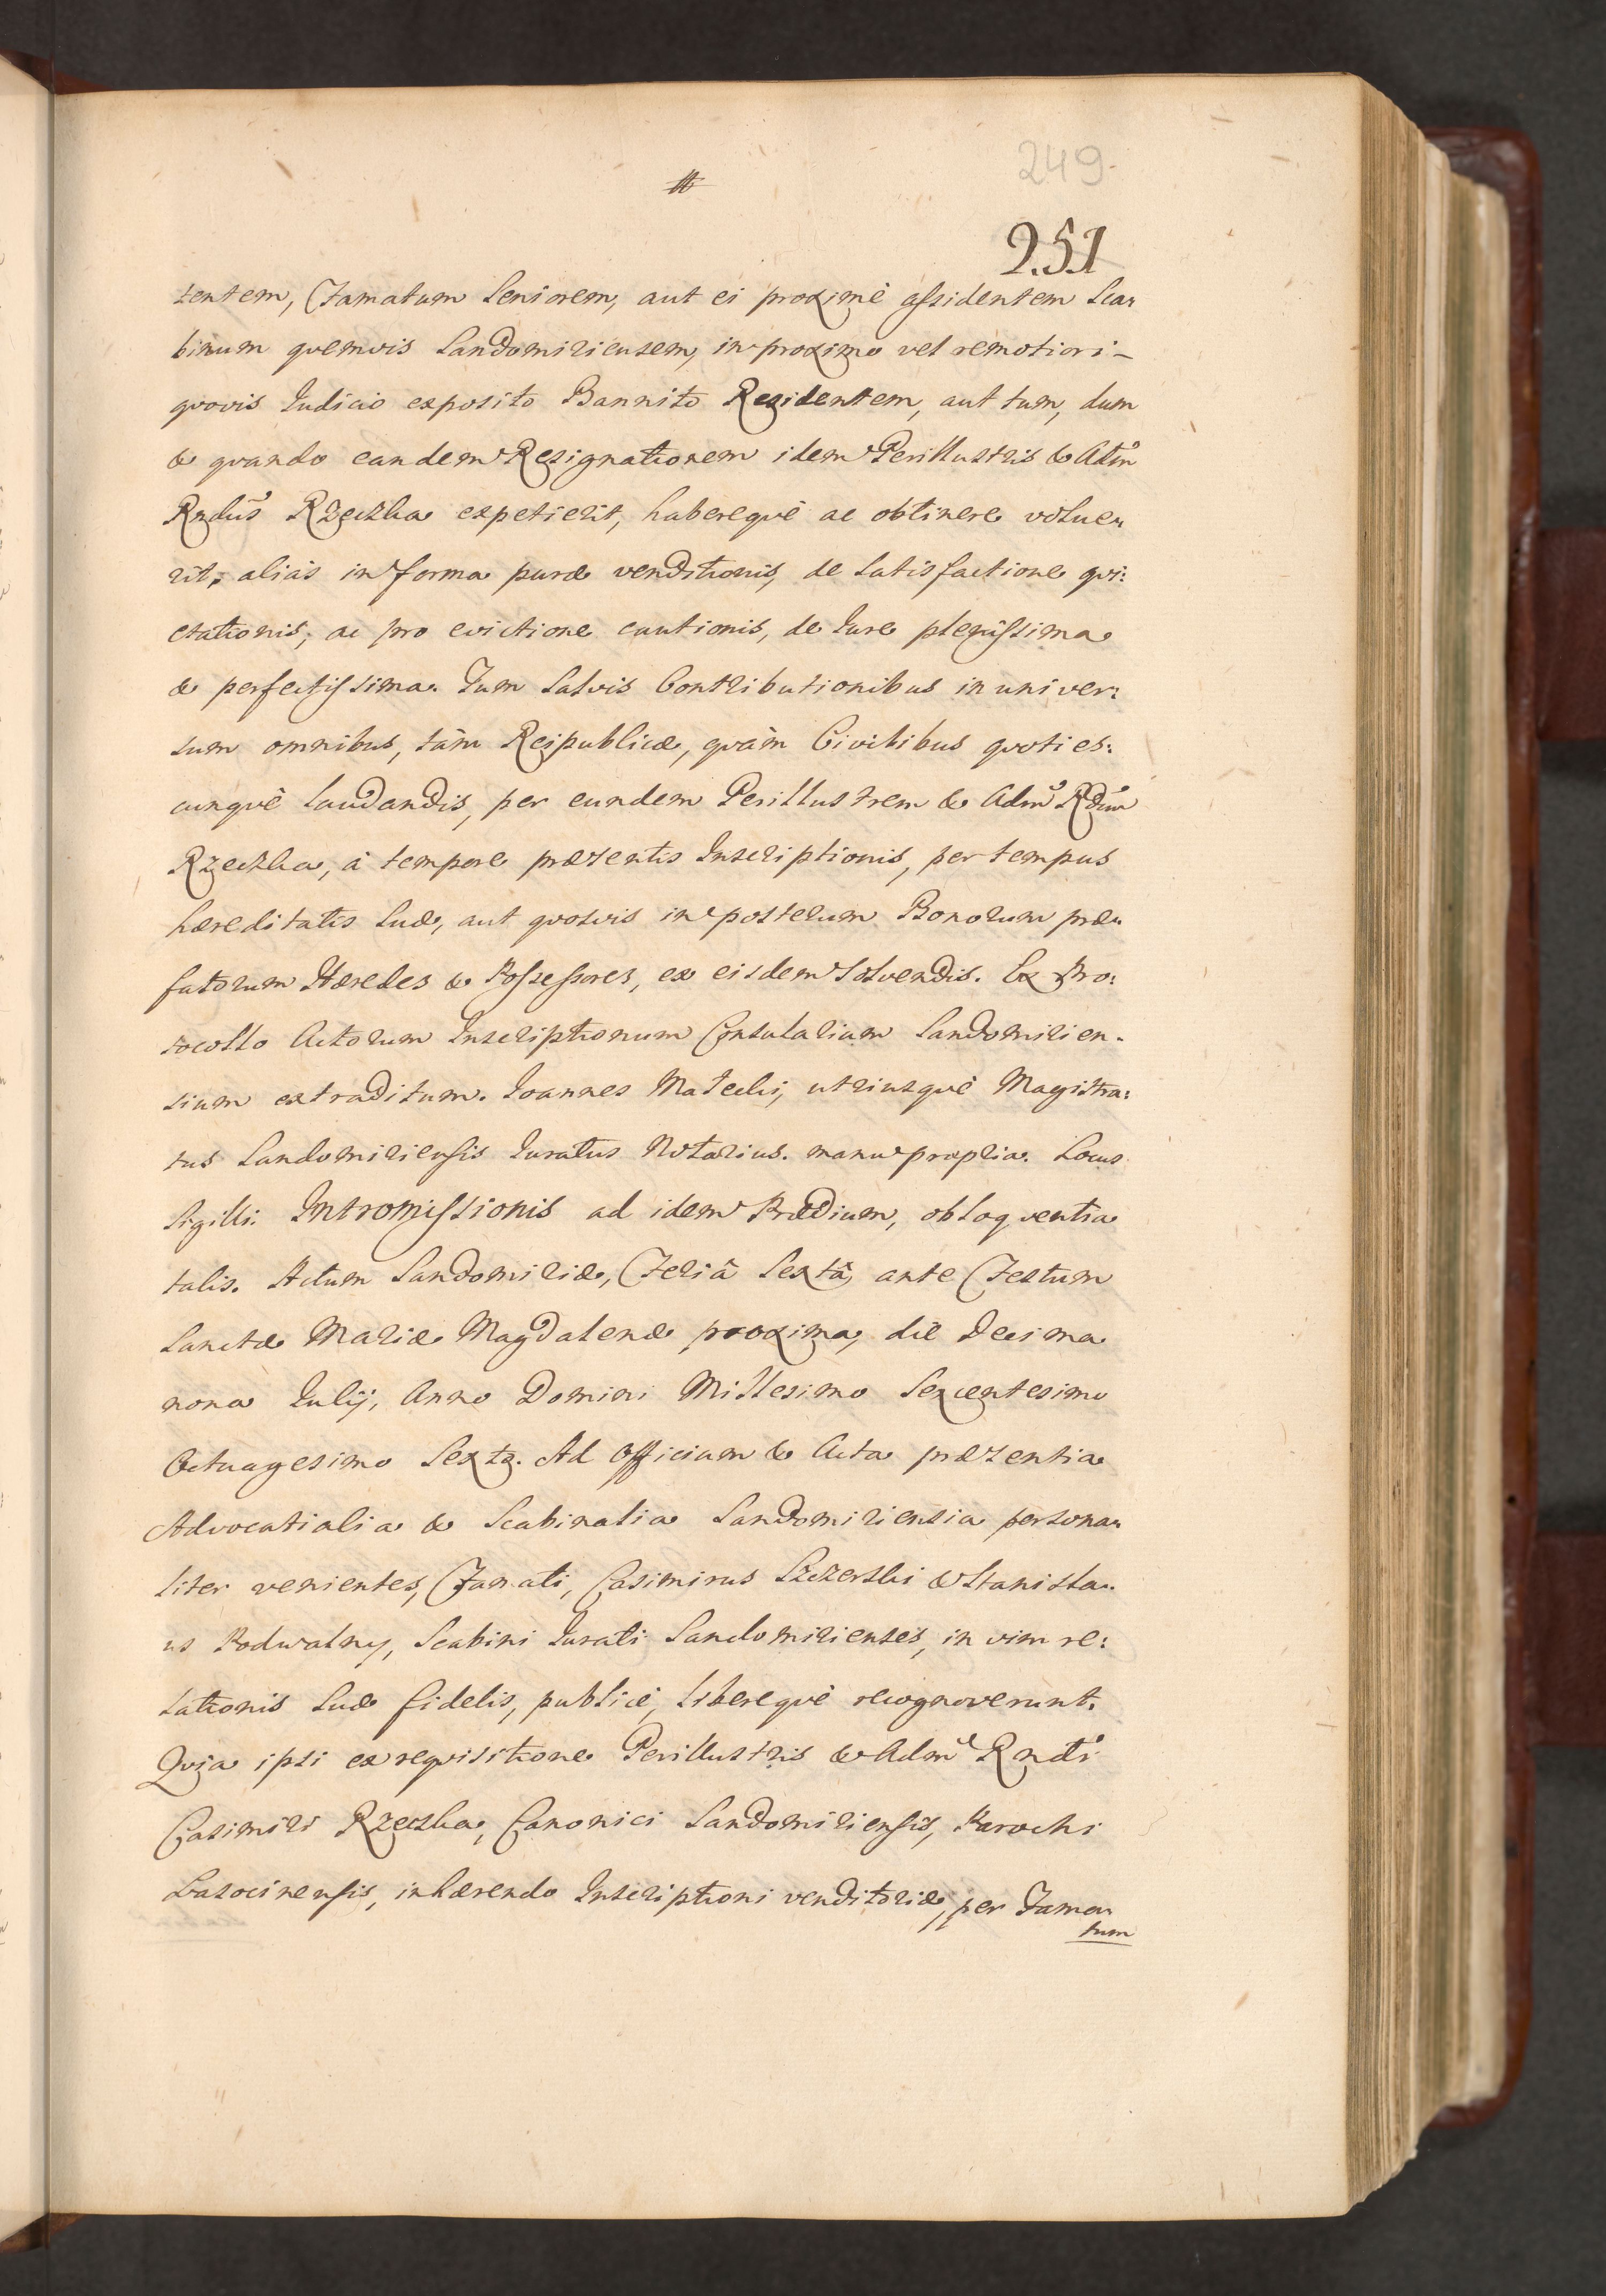 249.
251
tentem, Famatum Seniorem, aut ei proximè assidentem Sca„
binum quemvis Sandomiriensem, in proximo vel remotiori –
quovis Iudicio exposito Bannito Residentem, aut tum, dum
& quando eandem Resignationem idem Perillustris & Adm̃
Rndũs Rzeczka expetierit, haberequè ac obtinere volue„
rit, aliàs in forma puræ venditionis, de satisfactione qui:
etationis, ac pro evictione cautionis, de Iure plenissima
& perfectissima. Tum salvis Contributionibus in univer:
sum omnibus, tàm Reipublicæ, quàm Civilibus quoties:
cunquè laudandis, per eundem Perillustrem & Adm̃ Rdũm
Rzeczka, à tempore præsentis Inscriptionis, per tempus
hæreditatis suæ, aut quosvis in posterum Bonorum præ„
fatorum Hæredes & Possessores, ex eisdem solvendis. Ex Pro:
tocollo Actorum Inscriptionum Consularium Sandomirien.
sium extraditum. Ioannes Matecki, utriusquè Magistra:
tus Sandomiriensis Iuratus Notarius. manu propria. Locus
Sigilli. Intromissionis ad idem Prædium, obloquentia
talis. Actum Sandomiriæ, Feriâ Sextâ, ante Festum
Sanctæ Mariæ Magdalenæ proxima, die Decima
nona Iulij, Anno Domini Millesimo Sexcentesimo
Octuagesimo Sexto. Ad Officium & Acta præsentia
Advocatialia & Scabinalia Sandomiriensia persona„
liter venientes, Famati, Casimirus Szczerski & Stanisla„
us Podwalny, Scabini Iurati Sandomirienses, in vim re:
lationis suæ fidelis, publicè, liberequè recognoverunt.
Quia ipsi ex requisitione Perillustris & Adm̃ Rndi
Casimiri Rzeczka, Canonici Sandomiriensis, Parochi
Lasocinensis, inhærendo Inscriptioni venditoriæ, per Fama„
tum